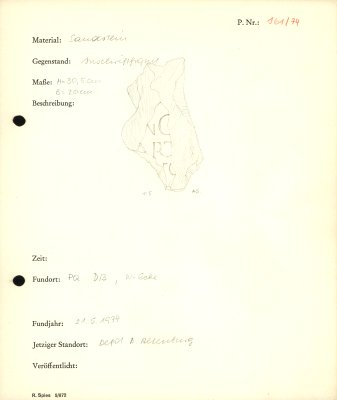 P. Nr.: 161/74
Material: Sandstein
Gegenstand: Inschriftfragm.
Maße: H. 30,5 cm
B. 20 cm
Beschreibung:
NC
ART
TC
Zeit:
Fundort: PQ D/2, W. Ecke
Fundjahr: 21.5.1974
Jetziger Standort: Depot B Altenburg
Veröffentlicht:
R. Spies 5/672